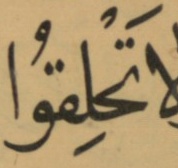 لَا تَحْلِقُوا